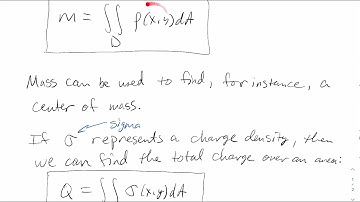 m = ∬_D ρ(x,y)dA
Mass can be used to find, for instance, a
center of mass.
sigma
If σ represents a charge density, then
we can find the total charge over an area:
Q = ∬ σ(x,y)dA